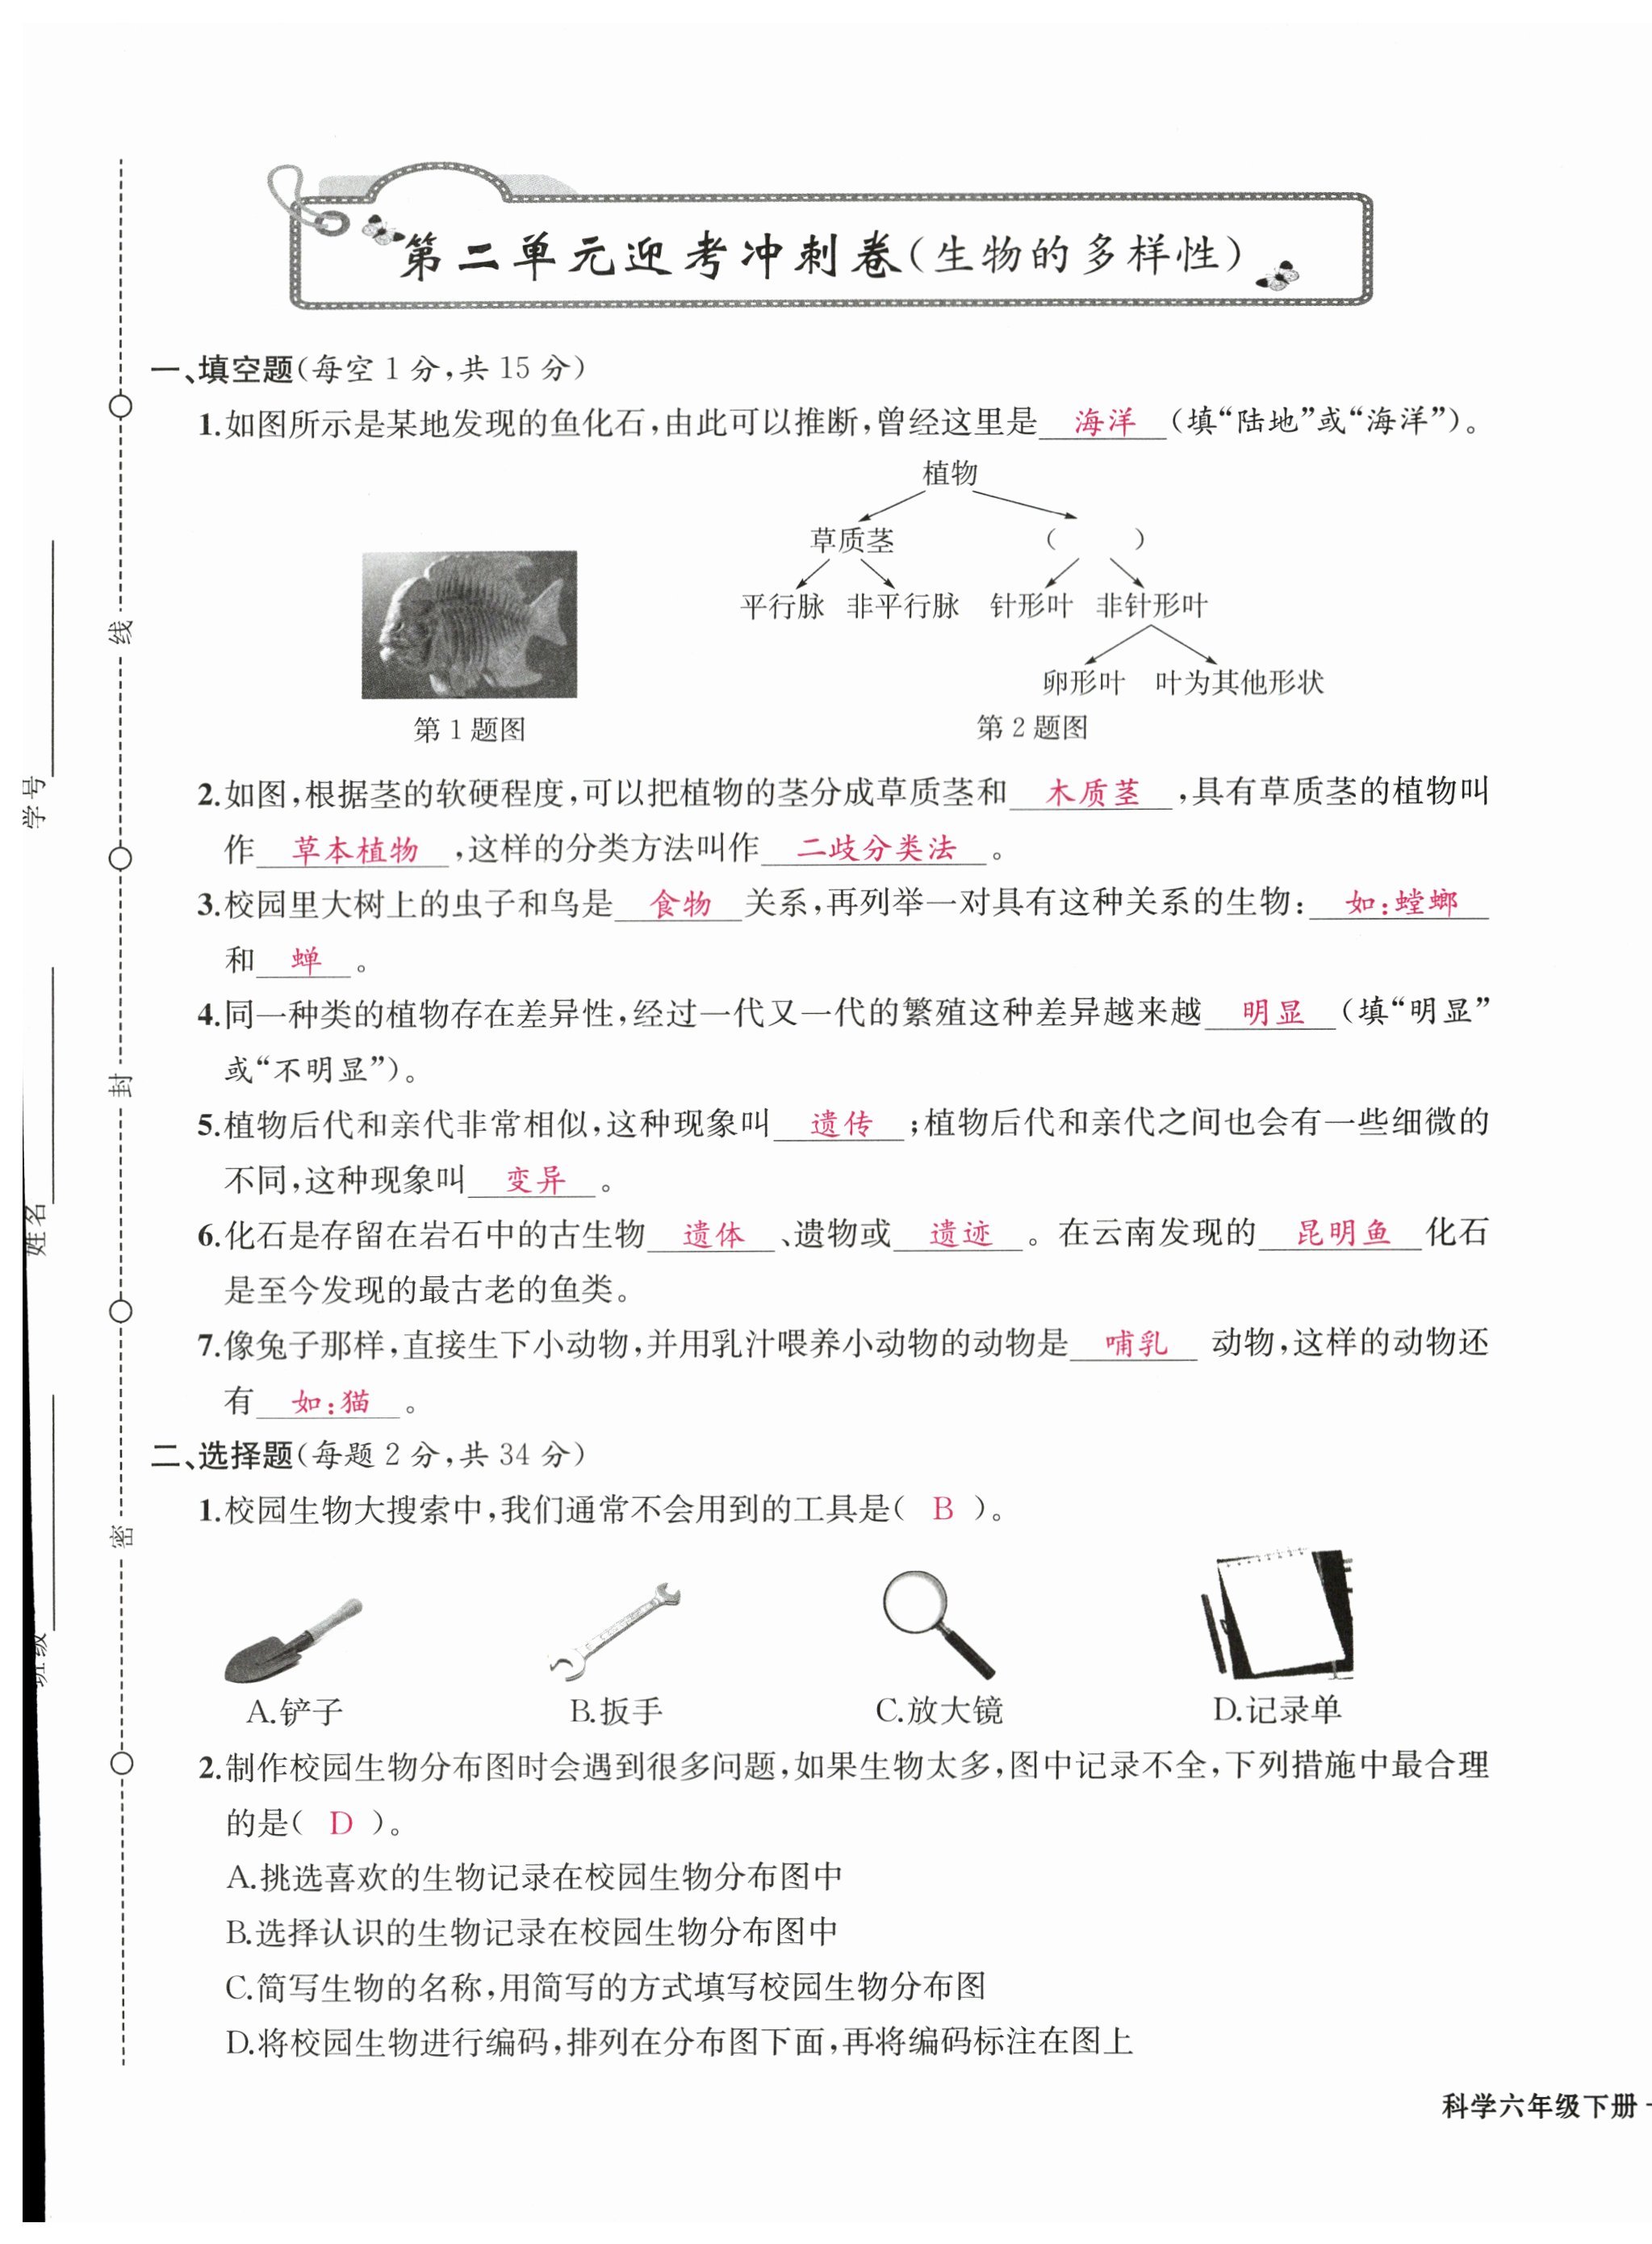 第二单元迎考冲刺卷(生物的多样性)
一、填空题(每空1分,共15分)
1.如图所示是某地发现的鱼化石,由此可以推断,曾经这里是 海洋 (填“陆地”或“海洋”)。
植物
草质茎 ( )
平行脉 非平行脉 针形叶 非针形叶
卵形叶 叶为其他形状
第1题图 第2题图
2.如图,根据茎的软硬程度,可以把植物的茎分成草质茎和 木质茎 ,具有草质茎的植物叫
作 草本植物 ,这样的分类方法叫作 二歧分类法 。
3.校园里大树上的虫子和鸟是 食物 关系,再列举一对具有这种关系的生物: 如:螳螂
和 蝉 。
4.同一种类的植物存在差异性,经过一代又一代的繁殖这种差异越来越 明显 (填“明显”
或“不明显”)。
5.植物后代和亲代非常相似,这种现象叫 遗传 ;植物后代和亲代之间也会有一些细微的
不同,这种现象叫 变异 。
6.化石是存留在岩石中的古生物 遗体 、遗物或 遗迹 。在云南发现的 昆明鱼 化石
是至今发现的最古老的鱼类。
7.像兔子那样,直接生下小动物,并用乳汁喂养小动物的动物是 哺乳 动物,这样的动物还
有 如:猫 。
二、选择题(每题2分,共34分)
1.校园生物大搜索中,我们通常不会用到的工具是( B )。
A.铲子 B.扳手 C.放大镜 D.记录单
2.制作校园生物分布图时会遇到很多问题,如果生物太多,图中记录不全,下列措施中最合理
的是( D )。
A.挑选喜欢的生物记录在校园生物分布图中
B.选择认识的生物记录在校园生物分布图中
C.简写生物的名称,用简写的方式填写校园生物分布图
D.将校园生物进行编码,排列在分布图下面,再将编码标注在图上
科学六年级下册
学号
姓名
班级
线
封
密